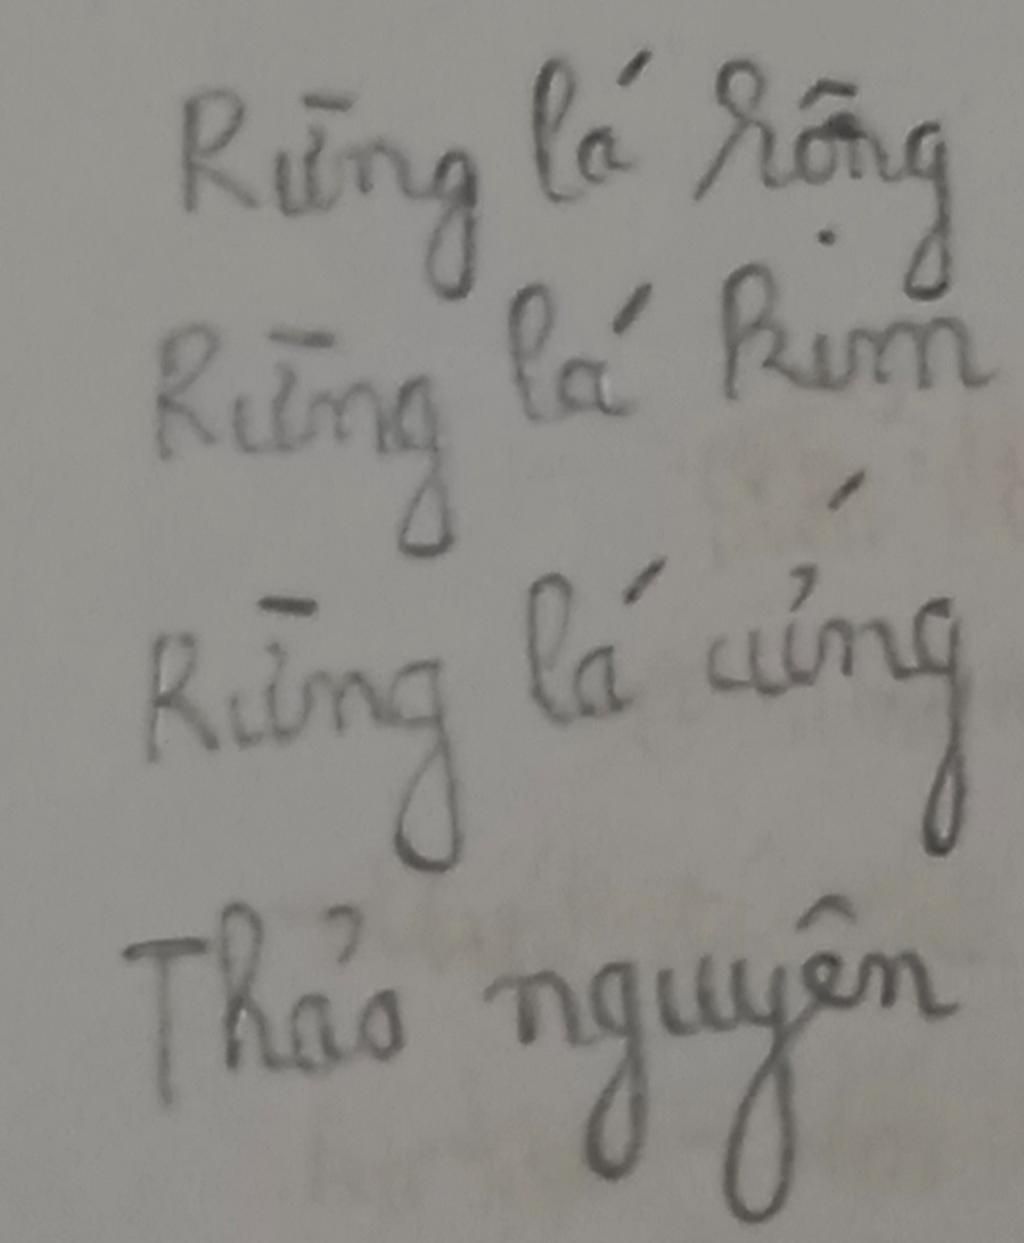 Rừng lá rộng
Rừng lá kim
Rừng lá cứng
Thảo nguyên